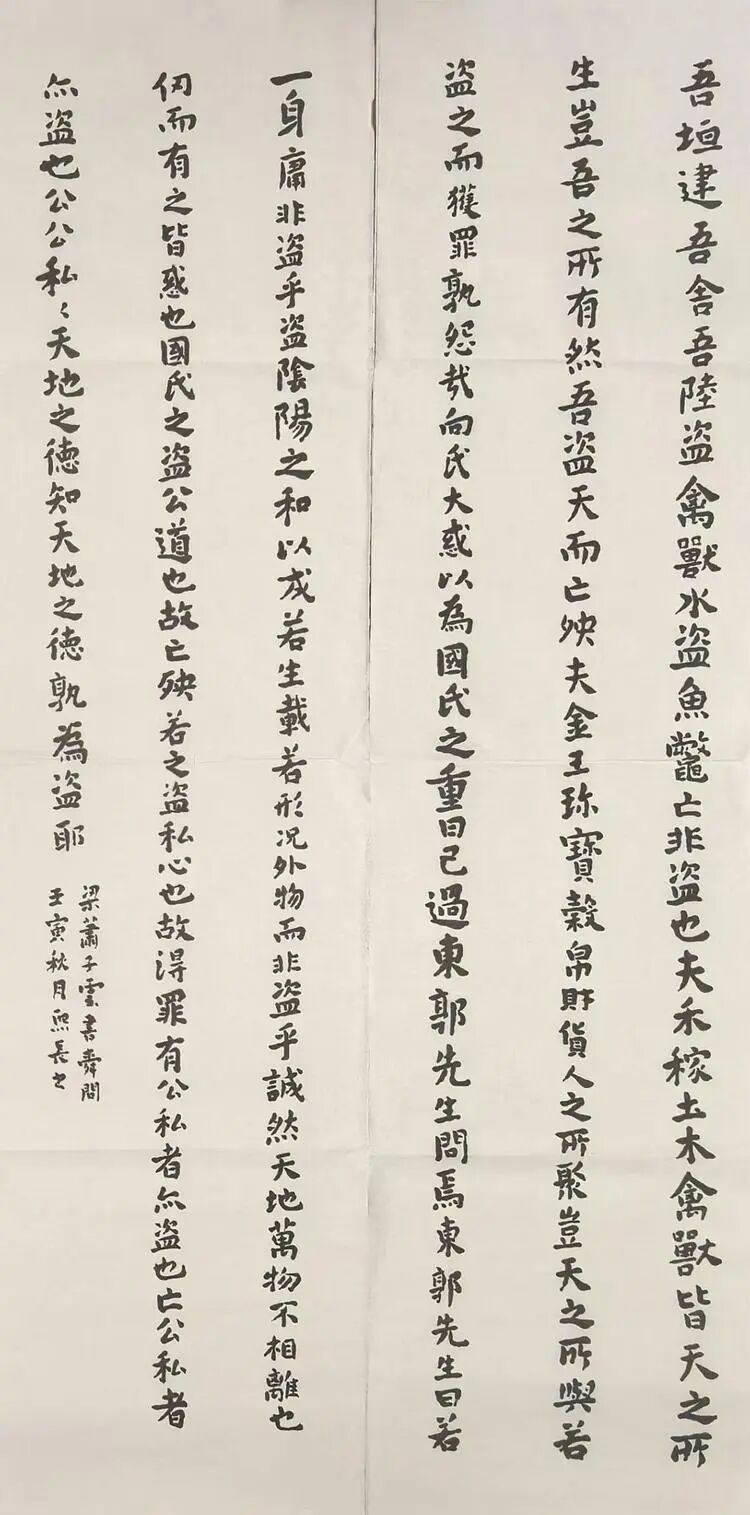 吾垣建吾舍吾陸盜禽獸水盜魚鼈亡非盜也夫禾稼土木禽獸皆天之所
生豈吾之所有然吾盜天而亡殃夫金玉珎寶穀帛財貨人之所聚豈天之所與若
盜之而獲罪孰怨哉向氏大惑以為國氏之重曰己過東郭先生問焉東郭先生曰若
一身庸非盜乎盜陰陽之和以成若生載若形况外物而非盜乎誠然天地萬物不相離也
仞而有之皆惑也國氏之盜公道也故亡殃若之盜私心也故得罪有公私者亦盜也亡公私者
亦盜也公公私〻天地之德知天地之德孰為盜耶
梁蕭子雲書舜問
壬寅秋月熙長書